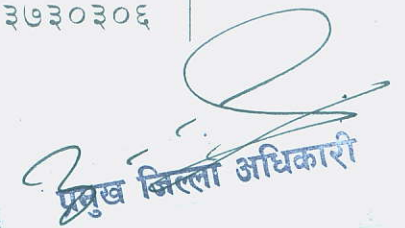 ३७३०३०६
प्रमुख जिल्ला अधिकारी